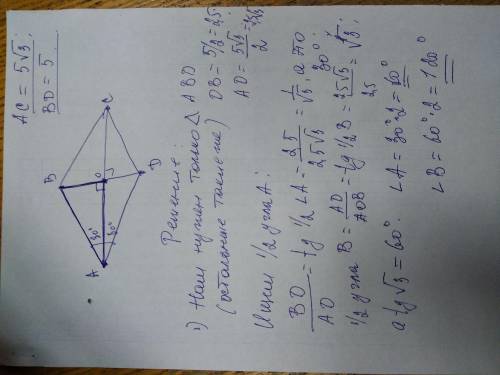 AC = 5√3
BD = 5
B
C
O
A
D
30°
30°
Решение:
1) Нам нужен только △ ABO
(остальные такие же)
OB = 5/2 = 2,5;
AO = 5√3/2 = 2,5√3
Ищем 1/2 угла A:
BO/AO = tg 1/2 ∠A = 2,5/2,5√3 = 1/√3; а это 30°
1/2 угла B = AO/ = tg 1/2 B = 2,5√3/2,5 = √3;
a tg √3 = 60°. ∠A = 30°·2 = 60°
∠B = 60°·2 = 120°